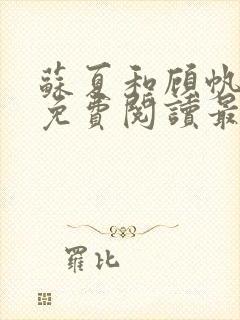 蘇夏和顧帆
免費閱讀最
羅比